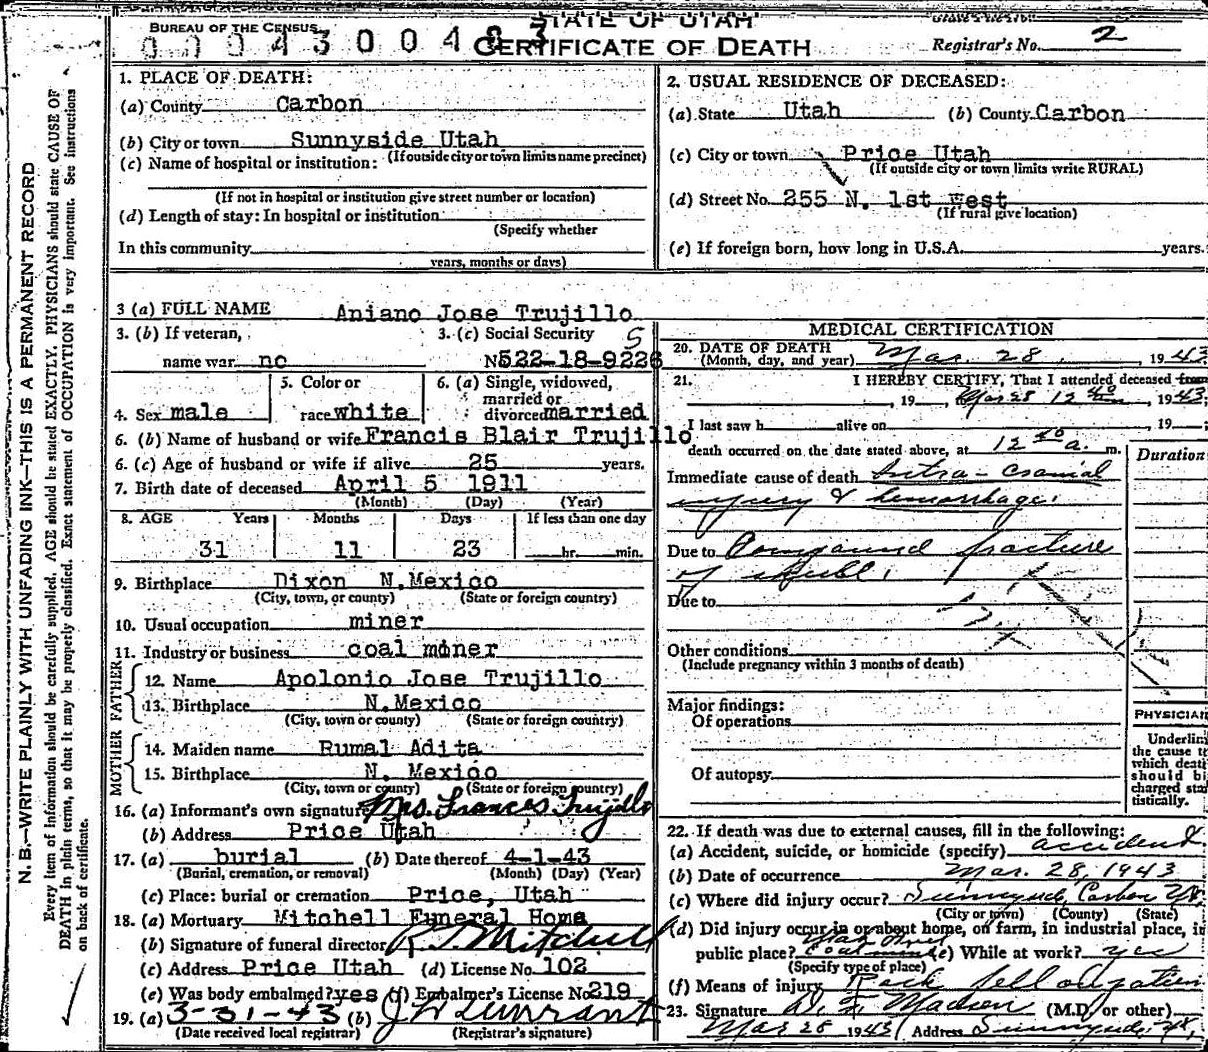 STATE OF UTAH
BUREAU OF THE CENSUS
CERTIFICATE OF DEATH
Registrar's No. 2
1. PLACE OF DEATH:
(a) County Carbon
(b) City or town Sunnyside Utah
(If outside city or town limits name precinct)
(c) Name of hospital or institution:
(If not in hospital or institution give street number or location)
(d) Length of stay: In hospital or institution
(Specify whether
In this community
years, months or days)
2. USUAL RESIDENCE OF DECEASED:
(a) State Utah (b) County Carbon
(c) City or town Price Utah
(If outside city or town limits write RURAL)
(d) Street No. 255 N. 1st West
(If rural give location)
(e) If foreign born, how long in U.S.A. years.
3 (a) FULL NAME Aniano Jose Trujillo
3. (b) If veteran,
name war no
3. (c) Social Security
No 522-18-9226
4. Sex male
5. Color or
race white
6. (a) Single, widowed,
married or
divorced married
6. (b) Name of husband or wife Francis Blair Trujillo
6. (c) Age of husband or wife if alive 25 years.
7. Birth date of deceased April 5 1911
(Month) (Day) (Year)
8. AGE Years Months Days If less than one day
31 11 23 hr. min.
9. Birthplace Dixon N.Mexico
(City, town, or county) (State or foreign country)
10. Usual occupation miner
11. Industry or business coal miner
FATHER
12. Name Apolonio Jose Trujillo
13. Birthplace N.Mexico
(City, town or county) (State or foreign country)
MOTHER
14. Maiden name Rumal Adita
15. Birthplace N. Mexico
(City, town or county) (State or foreign country)
16. (a) Informant's own signature Mrs. Frances Trujillo
(b) Address Price Utah
17. (a) burial (b) Date thereof 4-1-43
(Burial, cremation, or removal) (Month) (Day) (Year)
(c) Place: burial or cremation Price, Utah
18. (a) Mortuary Mitchell Funeral Home
(b) Signature of funeral director R. T. Mitchell
(c) Address Price Utah (d) License No. 102
(e) Was body embalmed? yes (f) Embalmer's License No. 219
19. (a) 3-31-43 (b)
(Date received local registrar) (Registrar's signature)
MEDICAL CERTIFICATION
20. DATE OF DEATH
(Month, day, and year) Mar. 28, 1943
21. I HEREBY CERTIFY, That I attended deceased from
, 19 , Mar 28 12 40 am, 1943,
I last saw h alive on , 19 ;
death occurred on the date stated above, at 12 40 a. m.
Duration
Immediate cause of death Intra-cranial
injury & hemorrhage.
Due to Compound fracture
of skull.
Due to
Other conditions
(Include pregnancy within 3 months of death)
Major findings:
Of operations
Of autopsy
PHYSICIAN
Underline
the cause to
which death
should be
charged sta-
tistically.
22. If death was due to external causes, fill in the following:
(a) Accident, suicide, or homicide (specify) accident
(b) Date of occurrence Mar. 28, 1943
(c) Where did injury occur? Sunnyside, Carbon Ut.
(City or town) (County) (State)
(d) Did injury occur in or about home, on farm, in industrial place, in
public place? coal mine (e) While at work? yes
(Specify type of place)
(f) Means of injury Rock fell on
23. Signature D. F. Madsen (M.D. or other)
Mar 28 1943 Address Sunnyside, Ut.
N. B.—WRITE PLAINLY WITH UNFADING INK—THIS IS A PERMANENT RECORD
Every item of information should be carefully supplied. AGE should be stated EXACTLY. PHYSICIANS should state CAUSE OF
DEATH in plain terms, so that it may be properly classified. Exact statement of OCCUPATION is very important. See instructions
on back of certificate.